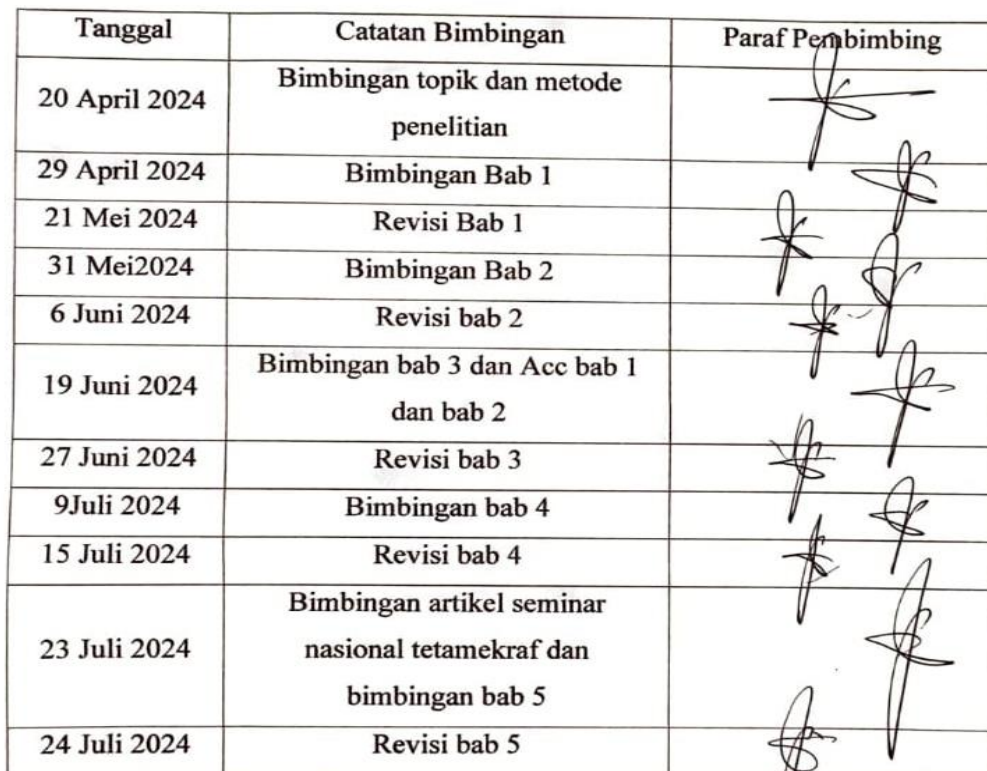 Tanggal Catatan Bimbingan Paraf Pembimbing
20 April 2024 Bimbingan topik dan metode
penelitian
29 April 2024 Bimbingan Bab 1
21 Mei 2024 Revisi Bab 1
31 Mei2024 Bimbingan Bab 2
6 Juni 2024 Revisi bab 2
19 Juni 2024 Bimbingan bab 3 dan Acc bab 1
dan bab 2
27 Juni 2024 Revisi bab 3
9Juli 2024 Bimbingan bab 4
15 Juli 2024 Revisi bab 4
23 Juli 2024 Bimbingan artikel seminar
nasional tetamekraf dan
bimbingan bab 5
24 Juli 2024 Revisi bab 5